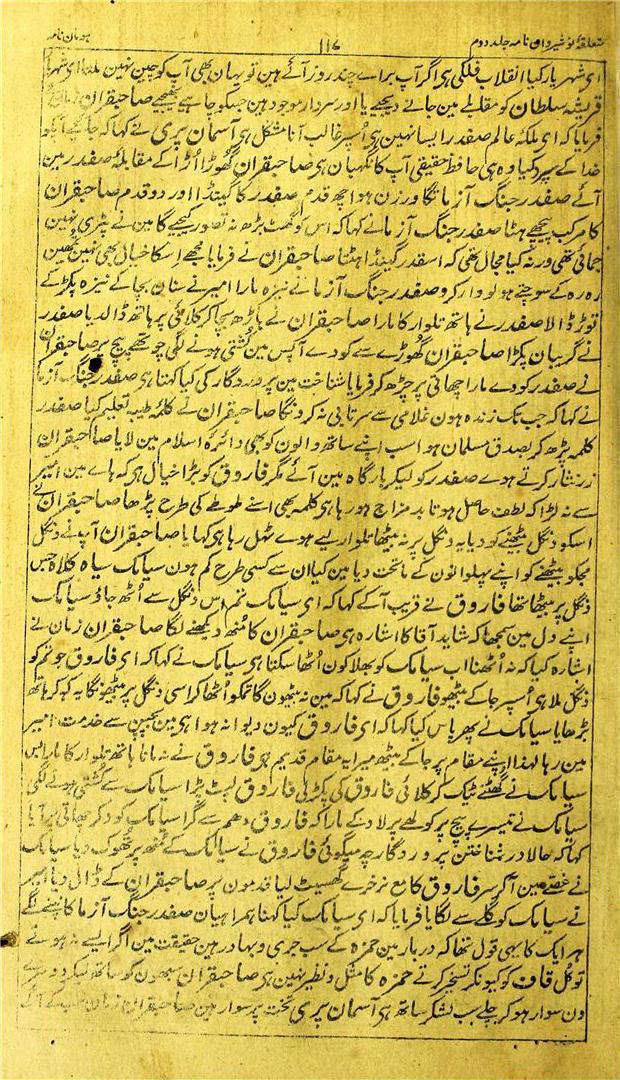 متعلقۂ نوشیروان نامہ جلد دوم ۱۱۷ ہومان نامہ
ای شہریار کیا انقلاب فلکی ہی اگر آپ براے چند روز آئے ہین تو یہان بھی آپ کو چین نہین ملتا ای شہریار
قریشہ سلطان کو مقابلے مین جانے دیجیے یا اور سردار موجود ہین جسکو چاہے بھیجیے صاحبقران زمان نے
فرمایا کہ ای ملکۂ عالم صفدر ایسا نہین ہی اُسپر غالب آنا مشکل ہی آسمان پری نے کہا کہ جائیے آپکو
خدا کے سپرد کیا وہ ہی حافظ حقیقی آپ کا نگہبان ہی صاحبقران گھوڑا اُڑا کے مقابلۂ صفدر مین
آئے صفدر جنگ آزما تگاورزن ہوا چھ قدم صفدر کا گینڈا اور دو قدم صاحبقران
کا مرکب پیچھے ہٹا صفدر جنگ آزما نے کہا کہ اس کو گھٹ بڑھ نہ تصور کیجیے گا مین نے پٹری نہین
جمائی تھی ورنہ کیا مجال تھی کہ اسقدر گینڈا ہٹتا صاحبقران نے فرمایا مجھے اِسکا خیال بھی نہین تمھین
رہ رہ کے سوچتے ہو لو وار کرو صفدر جنگ آزما نے نیزہ مارا امیر نے سنان بچا کے نیزہ پکڑ کے
توڑ ڈالا صفدر نے ہاتھ تلوار کا مارا صاحبقران نے باڑھ بچا کر کلائی پر ہاتھ ڈالدیا صفدر
نے گریبان پکڑا صاحبقران گھوڑے سے کودے آپس مین کُشتی ہونے لگی چوتھے پیچ پر صاحبقران
نے صفدر کو دے مارا چھاتی پر چڑھ کر فرمایا شناخت مین پروردگار کی کیا کہتا ہی صفدر جنگ آزما
نے کہا کہ جب تک زندہ ہون غلامی سے سرتابی نہ کرونگا صاحبقران نے کلمۂ طیب تعلیم کیا صفدر
کلمہ پڑھ کر بصدق مسلمان ہوا سب اپنے ساتھ والون کو بھی دائرہ اسلام مین لایا صاحبقران
زر نثار کرتے ہوے صفدر کو لیکر بارگاہ مین آئے مگر فاروق کو بڑا خیال ہی کہ ہاے مین امیر
سے نہ لڑا کہ لطف حاصل ہوتا بد مزاج ہو رہا ہی کلمہ بھی اسنے طوطے کی طرح پڑھا صاحبقران نے
اسکو دنگل بیٹھنے کو دیا یہ دنگل پر نہ بیٹھا تلوار لیے ہوے ٹہل رہا ہی کہا یا صاحبقران آپ نے دنگل
مجکو بیٹھنے کو اپنے پہلوانون کے ماتحت دیا مین کیا ان سے کسی طرح کم ہون سیامک سیاہ کلاہ جس
دنگل پر بیٹھا تھا فاروق نے قریب آکے کہا کہ ای سیامک تم اس دنگل سے اُٹھ جاؤ سیامک
اپنے دل مین سمجھا کہ شاید آقا کا اشارہ ہی صاحبقران کا مُنھ دیکھنے لگا صاحبقران زمان نے
اشارہ کیا کہ نہ اُٹھنا اب سیامک کو بھلا کون اُٹھا سکتا ہی سیامک نے کہا کہ ای فاروق جو تم کو
دنگل ملا ہی اُسپر جا کے بیٹھو فاروق نے کہا کہ مین نہ بیٹھون گا تمکو اُٹھا کر اسی دنگل پر بیٹھونگا یہ کہہ کر ہاتھ
بڑھایا سیامک نے پھر پاس کیا کہا کہ ای فاروق کیون دیوانہ ہوا ہی مین بچپن سے خدمت امیر
مین رہا لہذا اپنے مقام پر جا کے بیٹھ میرا یہ مقام قدیم ہی فاروق نے نہ مانا ہاتھ تلوار کا مارا
سیامک نے گھٹنے ٹیک کر کلائی فاروق کی پکڑ لی فاروق لپٹ پڑا سیامک سے کُشتی ہونے لگی
سیامک نے تیسرے پیچ پر کولھے پر لاد کے مارا کہ فاروق دھم سے گرا سیامک کود کر چھاتی پر آیا
کہا کہ حالا در شناختن پروردگار چہ میگوئی فاروق نے سیامک کے مُنھ پر تھوک دیا سیامک
نے غصے مین آکر سر فاروق کا مع نرخرے گھسیٹ لیا قدمون پر صاحبقران کے ڈال دیا امیر
نے سیامک کو گلے سے لگایا فرمایا کہ ای سیامک کیا کہنا ہمراہیان صفدر جنگ آزما کانپنے لگے
ہر ایک کا یہی قول تھا کہ دربار مین حمزہ کے سب جری و بہادر ہین حقیقت مین اگر ایسے نہ ہوتے
تو کُل قاف کو کیونکر تسخیر کرتے حمزہ کا مثل و نظیر نہین ہی صاحبقران سبھون کو ساتھ لیکر دوسرے
دن سوار ہو کر چلے سب لشکر ساتھ ہی آسمان پری تخت پر سوار ہین صاحبقران زمان